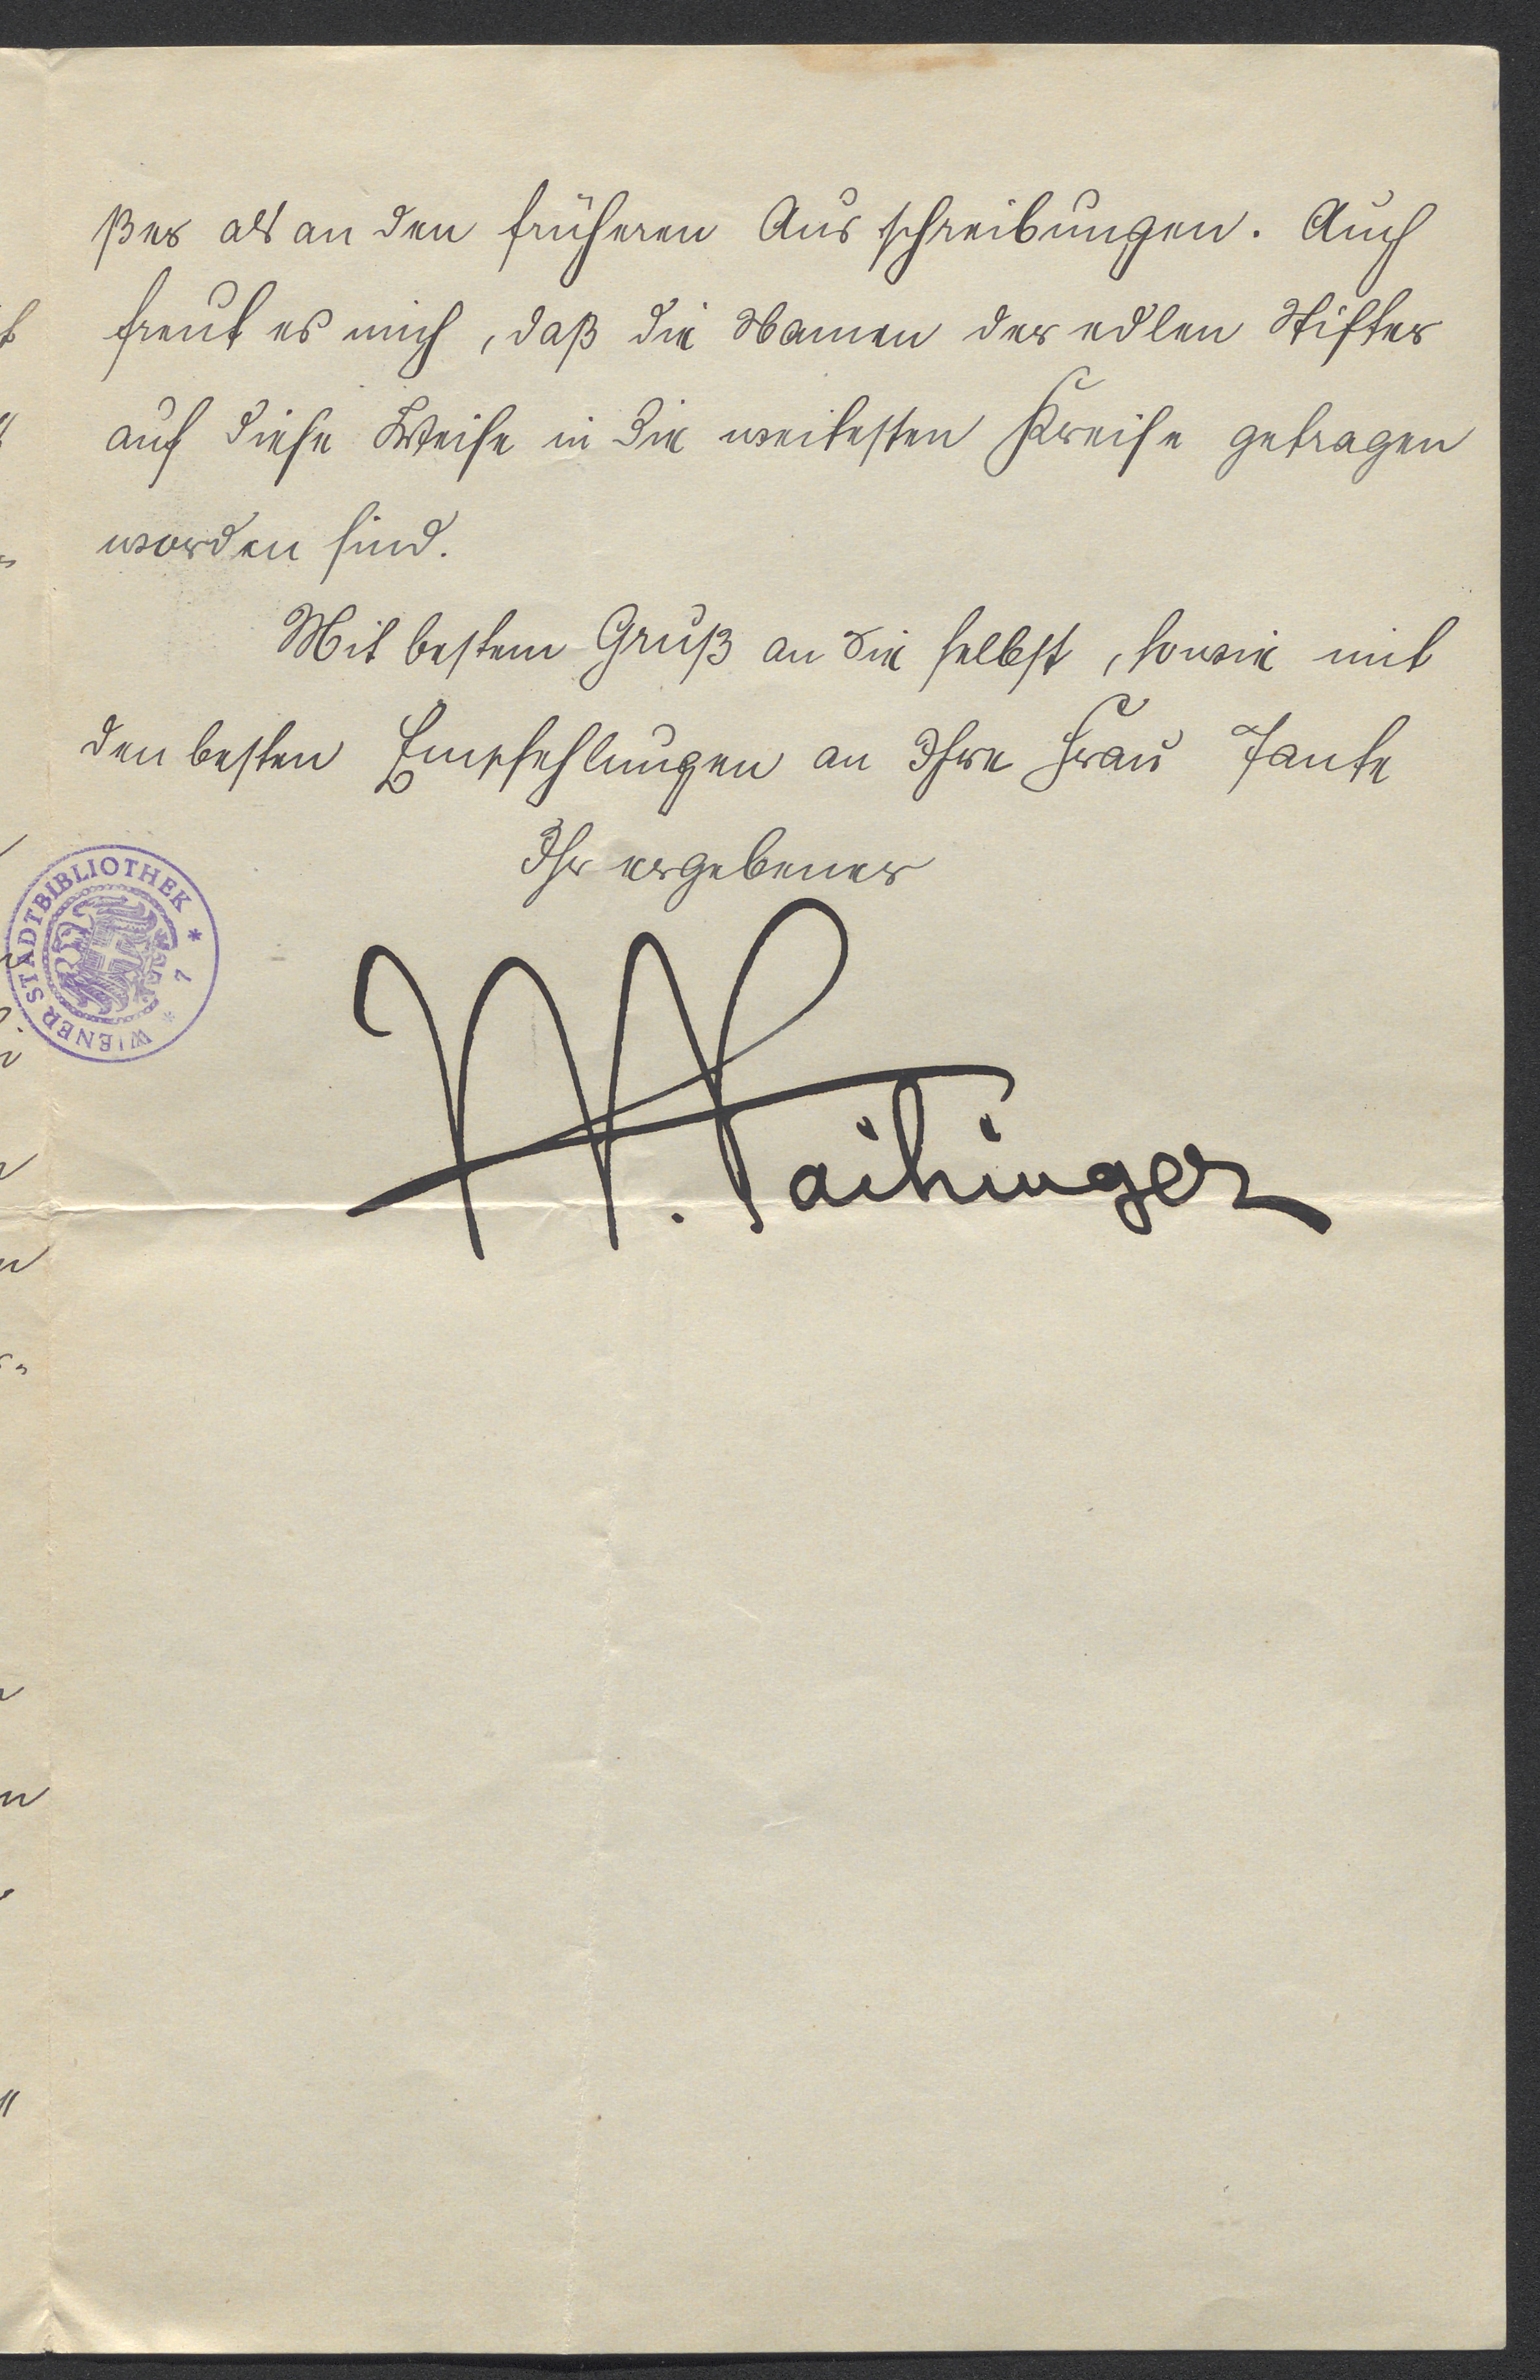 ßer als an den früheren Ausschreibungen. Auch
freut es mich, daß die Namen der edlen Stifter
auf diese Weise in die weitesten Kreise getragen
worden sind.
Mit bestem Gruß an Sie selbst, sowie mit
den besten Empfehlungen an Ihre Frau Tante
Ihr ergebener
H. Vaihinger
WIENER STADTBIBLIOTHEK * 7 *